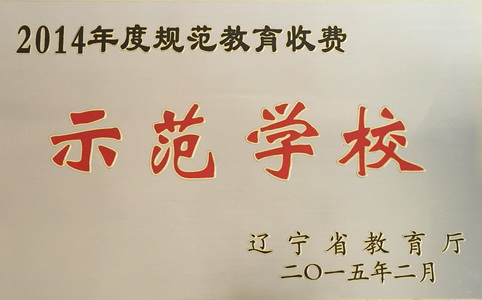 2014年度规范教育收费
示范学校
辽宁省教育厅
二〇一五年二月